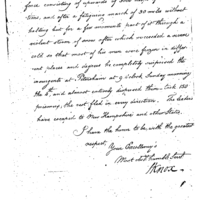 force consisting of upwards of
time, and after a fatiguing march of 30 miles without
halting but for a few minutes part of it through a
violent storm of snow after which succeeded a severe
cold so that most of his men were frozen in differ-
ent places and degrees he completely surprized the
insurgents at Petersham at 9 oClock Sunday morning
the 4th, and almost entirely dispersed them, took 150
prisoners, the rest fled in every direction. The leaders
have escaped to New Hampshire and other States.
I have the honor to be, with the greatest
respect,
Your Excellency's
Most obedt humble Servt
HKnox